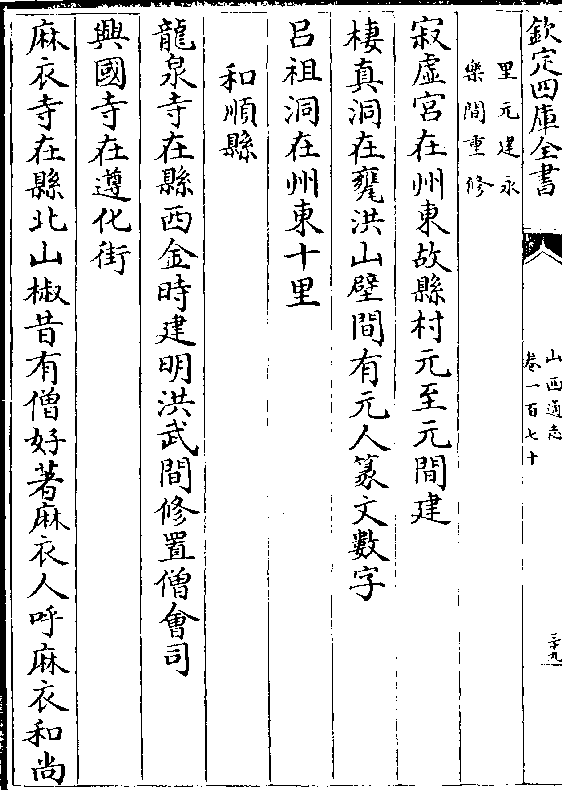 欽定四庫全書
山西通志
卷一百七十
三十九
里元建永
樂間重修
寂虛宮在州東故縣村元至元間建
棲真洞在甕洪山壁間有元人篆文數字
呂祖洞在州東十里
和順縣
龍泉寺在縣西金時建明洪武間修置僧會司
興國寺在遵化街
麻衣寺在縣北山椒昔有僧好著麻衣人呼麻衣和尚